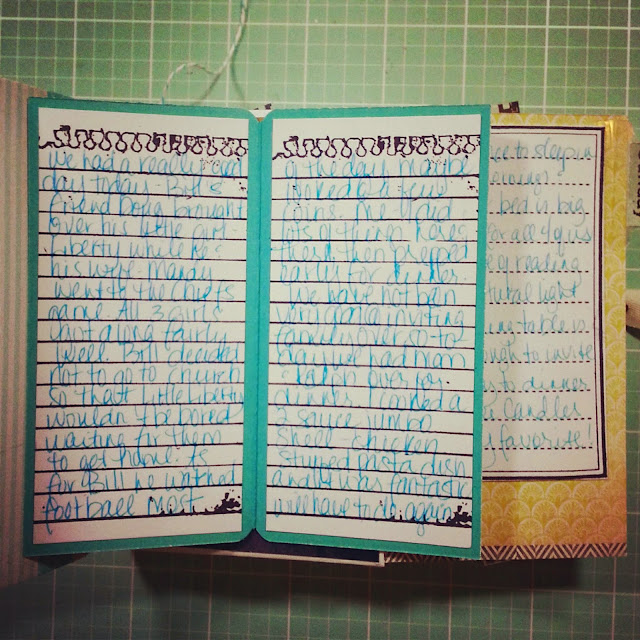 we had a really good
day today - Bill's
friend Doug brought
over his little girl -
Liberty while he &
his wife - Mandy
went to the Chiefs
game. All 3 girls
got along fairly
well. Bill decided
not to go to church
so that little Liberty
wouldn't be bored
waiting for them
to get home. As
for Bill he watched
football most
of the day & maybe
worked on a few
coins. Me I did
lots of things here &
there then prepped
early for dinner.
We have not been
very good inviting
family over so to
day we had mom
& Ralph over for
dinner. I cooked a
3 sauce jumbo
shell - chicken
stuffed pasta dish
and it was fantastic
will have to do again
to sleep in
evenings
bed is big
for all 4 of us
reading
light
table is
to invite
to dinner
candles
favorite!